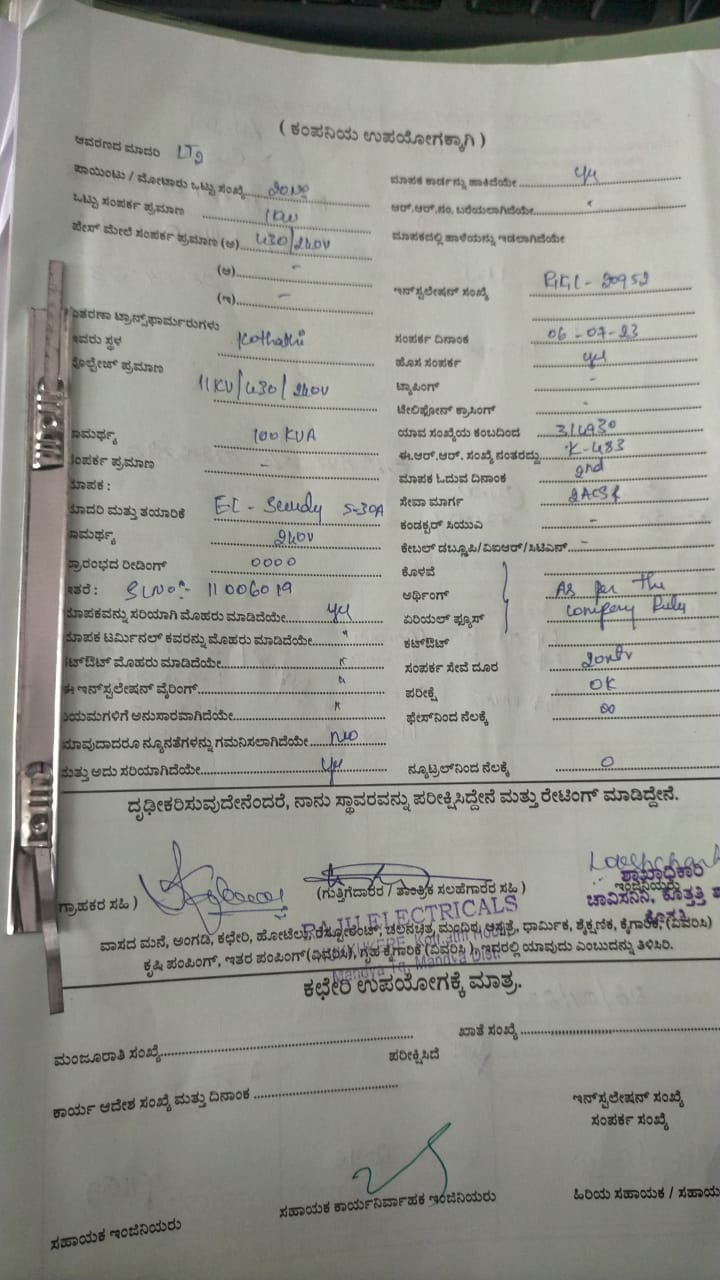 ( ಕಂಪನಿಯ ಉಪಯೋಗಕ್ಕಾಗಿ )
ಆವರಣದ ಮಾದರಿ LT2
ಪಾಯಿಂಟು / ಮೋಟಾರು ಒಟ್ಟು ಸಂಖ್ಯೆ
ಒಟ್ಟು ಸಂಪರ್ಕ ಪ್ರಮಾಣ 1KW
ಫೇಸ್ ಮೇಲೆ ಸಂಪರ್ಕ ಪ್ರಮಾಣ (ಅ) 430/240V
(ಆ) -
(ಇ) -
ವಿತರಣಾ ಟ್ರಾನ್ಸ್‌ಫಾರ್ಮರುಗಳು
ಇವರು ಸ್ಥಳ Kothathi
ವೋಲ್ಟೇಜ್ ಪ್ರಮಾಣ 11KV/430/240V
ಸಾಮರ್ಥ್ಯ 100 KVA
ಸಂಪರ್ಕ ಪ್ರಮಾಣ -
ಮಾಪಕ :
ಮಾದರಿ ಮತ್ತು ತಯಾರಿಕೆ 5-30A
ಸಾಮರ್ಥ್ಯ 240V
ಪ್ರಾರಂಭದ ರೀಡಿಂಗ್ 0000
ಇತರೆ : SLNO:- 11006019
ಮಾಪಕವನ್ನು ಸರಿಯಾಗಿ ಮೊಹರು ಮಾಡಿದೆಯೇ yes
ಮಾಪಕ ಟರ್ಮಿನಲ್ ಕವರನ್ನು ಮೊಹರು ಮಾಡಿದೆಯೇ "
ಕಟ್‌ಔಟ್ ಮೊಹರು ಮಾಡಿದೆಯೇ "
ಈ ಇನ್‌ಸ್ಟಲೇಷನ್ ವೈರಿಂಗ್ "
ನಿಯಮಗಳಿಗೆ ಅನುಸಾರವಾಗಿದೆಯೇ "
ಯಾವುದಾದರೂ ನ್ಯೂನತೆಗಳನ್ನು ಗಮನಿಸಲಾಗಿದೆಯೇ no
ಮತ್ತು ಅದು ಸರಿಯಾಗಿದೆಯೇ yes
ಮಾಪಕ ಕಾರ್ಡನ್ನು ಹಾಕಿದೆಯೇ yes
ಆರ್.ಆರ್.ನಂ. ಬರೆಯಲಾಗಿದೆಯೇ "
ಮಾಪಕದಲ್ಲಿ ಹಾಳೆಯನ್ನು ಇಡಲಾಗಿದೆಯೇ
ಇನ್‌ಸ್ಟಲೇಷನ್ ಸಂಖ್ಯೆ 20952
ಸಂಪರ್ಕ ದಿನಾಂಕ 06-07-23
ಹೊಸ ಸಂಪರ್ಕ yes
ಟ್ಯಾಪಿಂಗ್ -
ಟೆಲಿಫೋನ್ ಕ್ರಾಸಿಂಗ್ -
ಯಾವ ಸಂಖ್ಯೆಯ ಕಂಬದಿಂದ
ಈ.ಆರ್.ಆರ್. ಸಂಖ್ಯೆ ನಂತರದ್ದು K-483
ಮಾಪಕ ಓದುವ ದಿನಾಂಕ 2nd
ಸೇವಾ ಮಾರ್ಗ 2ACSR
ಕಂಡಕ್ಟರ್ ಸಿಯುಎ -
ಕೇಬಲ್ ಡಬ್ಲ್ಯೂಪಿ/ವಿಐಆರ್/ಸಿಟಿಎಸ್ -
ಕೊಳವೆ
ಅರ್ಥಿಂಗ್ As per the
ಏರಿಯಲ್ ಫ್ಯೂಸ್ company Rules
ಕಟ್‌ಔಟ್
ಸಂಪರ್ಕ ಸೇವೆ ದೂರ 20mtr
ಪರೀಕ್ಷೆ OK
ಫೇಸ್‌ನಿಂದ ನೆಲಕ್ಕೆ ∞
ನ್ಯೂಟ್ರಲ್‌ನಿಂದ ನೆಲಕ್ಕೆ 0
ದೃಢೀಕರಿಸುವುದೇನೆಂದರೆ, ನಾನು ಸ್ಥಾವರವನ್ನು ಪರೀಕ್ಷಿಸಿದ್ದೇನೆ ಮತ್ತು ರೇಟಿಂಗ್ ಮಾಡಿದ್ದೇನೆ.
ಗ್ರಾಹಕರ ಸಹಿ )
(ಗುತ್ತಿಗೆದಾರರ / ತಾಂತ್ರಿಕ ಸಲಹೆಗಾರರ ಸಹಿ )
ಇಂಜಿನಿಯರು
ಶಾಖಾಧಿಕಾರಿ
ಚಾವಿಸನಿನಿ, ಕೊತ್ತತ್ತಿ
ಕೊತ್ತತ್ತಿ
RAJU ELECTRICALS
Mandya Tq, Mandya Dist.
ವಾಸದ ಮನೆ, ಅಂಗಡಿ, ಕಛೇರಿ, ಹೋಟೆಲು, ರೆಸ್ಟೋರೆಂಟ್, ಚಲನಚಿತ್ರ, ಮಂದಿರ, ಆಸ್ಪತ್ರೆ, ಧಾರ್ಮಿಕ, ಶೈಕ್ಷಣಿಕ, ಕೈಗಾರಿಕೆ, (ವಿವರಿಸಿ)
ಕೃಷಿ ಪಂಪಿಂಗ್, ಇತರ ಪಂಪಿಂಗ್(ವಿವರಿಸಿ), ಗೃಹ ಕೈಗಾರಿಕೆ (ವಿವರಿಸಿ ), ಇದರಲ್ಲಿ ಯಾವುದು ಎಂಬುದನ್ನು ತಿಳಿಸಿರಿ.
ಕಛೇರಿ ಉಪಯೋಗಕ್ಕೆ ಮಾತ್ರ.
ಮಂಜೂರಾತಿ ಸಂಖ್ಯೆ
ಖಾತೆ ಸಂಖ್ಯೆ
ಪರೀಕ್ಷಿಸಿದೆ
ಕಾರ್ಯ ಆದೇಶ ಸಂಖ್ಯೆ ಮತ್ತು ದಿನಾಂಕ
ಇನ್‌ಸ್ಟಲೇಷನ್ ಸಂಖ್ಯೆ
ಸಂಪರ್ಕ ಸಂಖ್ಯೆ
ಸಹಾಯಕ ಇಂಜಿನಿಯರು
ಸಹಾಯಕ ಕಾರ್ಯನಿರ್ವಾಹಕ ಇಂಜಿನಿಯರು
ಹಿರಿಯ ಸಹಾಯಕ / ಸಹಾಯ